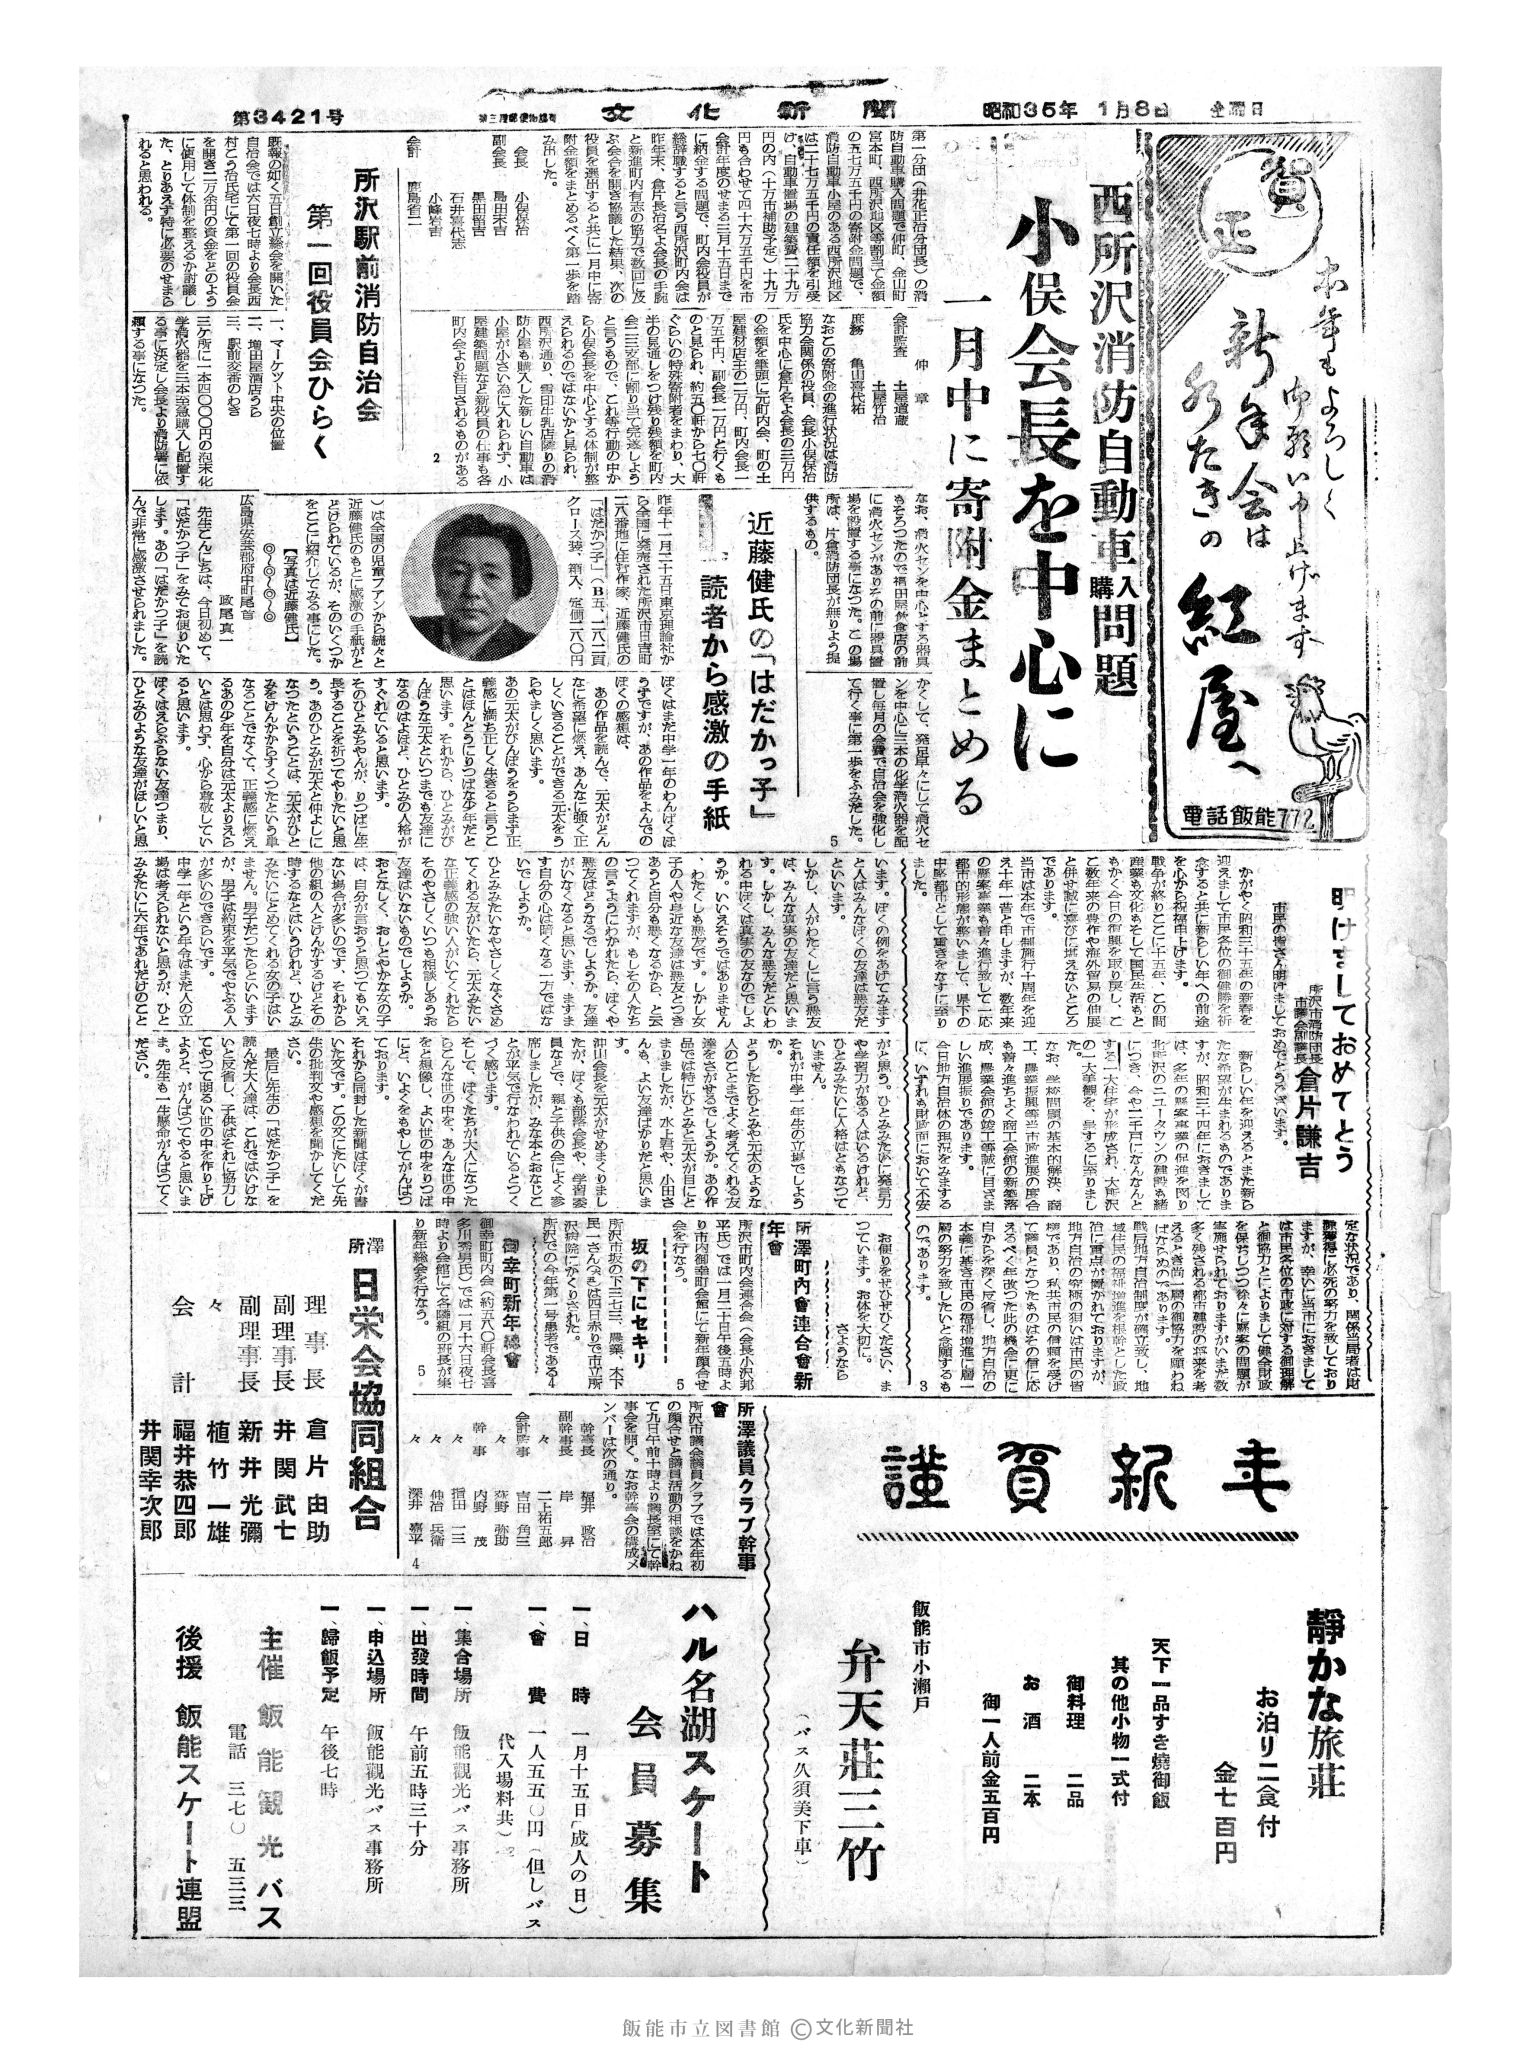 第3421号
第三種郵便物認可
文化新聞
昭和35年 1月8日 金曜日
賀正
本年もよろしく
御願い申上げます
新年会は
水たきの
紅屋へ
電話飯能772
西所沢消防自動車購入問題
小俣会長を中心に
一月中に寄附金まとめる
第一分団（井花正治分団長）の消
防自動車購入問題で仲町、金山町
宮本町、西所沢地区等割当て金額
の五七万五千円の寄附金問題で、
消防自動車小屋のある西所沢地区
は二七万五千円の責任額を引受
け、自動車置場の建築費二十九万
円の内（十万市補助予定）十九万
円も合わせて四十六万五千円を市
会計年度のせまる三月十五日まで
に納金する問題で、町内会役員が
総辞職すると言う西所沢町内会は
昨年末、倉片長治名よ会長の手腕
と新進町内有志の協力で数回に及
ぶ会合を開き協議した結果、次の
役員を選出すると共に一月中に寄
附金額をまとめるべく第一歩を踏
み出した。
会長 小俣保治
副会長 島田末吉
黒田裕吉
石井喜代志
小峰岩吉
会計 鹿島省二
仲 章
会計監査 土屋道蔵
土屋竹治
庶務 亀山喜代祐
なおこの寄附金の進行状況は消防
協力会関係の役員、会長小俣保治
氏を中心に倉片名よ会長の三万円
の金額を筆頭に元町内会、町の土
屋建材店主の二万円、町内会長一
万五千円、副会長一万円と行くも
のと見られ、約五〇軒から七〇軒
ぐらいの特殊寄附者をまわり、大
半の見通しをつけ残り残額を町内
会二三支部に割り当て完遂しよう
と言うもので、これ等行動の中か
ら小俣会長を中心とする体制が整
えられるのではないかと見られ、
西所沢通り、雪印牛乳店隣りの消
防小屋も購入した新しい自動車は
小屋が小さい為に入れられず、小
屋建築問題など新役員の仕事も各
町内会より注目されるものがある
2
所沢駅前消防自治会
第一回役員会ひらく
既報の如く五日創立総会を開いた
自治会では六日夜七時より会長西
村こう治氏宅にて第一回の役員会
を開き二万余円の資金をどのよう
に使用して体制を整えるか討議し
た、とりあえず特に必要のせまら
れると思われる。
一、マーケツト中央の位置
二、増田屋酒店うら
三、駅前交番のわき
三ケ所に一本四〇〇〇円の泡末化
学消火器を三本至急購入し配置す
る事に決定し会長より消防署に依
頼する事になつた。
なお、消火センを中心とする器具
もそろつたので福田屋飲食店の前
に消火センがありその前に器具置
場を設置する事になつた。この場
所は、片倉消防団長が無りよう提
供するもの。
かくして、発足早々にして消火セ
ンを中心に三本の化学消火器を配
置し毎月の会費で自治会を強化し
て行く事に第一歩をふみだした。
5
近藤健氏の「はだかっ子」
読者から感激の手紙
昨年十一月二十五日東京理論社か
ら全国に発売された所沢市日吉町
二八番地に住む作家、近藤健氏の
「はだかつ子」（B五、二八二頁
クロース装、箱入、定価二八〇円
）は全国の児童フアンから続々と
近藤健氏のもとに感激の手紙がと
どけられているが、そのいくつか
をここに紹介してみる事にした。
【写真は近藤健氏】
◎〜◎〜◎〜◎
広島県安芸郡府中町尾首
政尾真一
先生こんにちは、今日初めて、
「はだかつ子」をみてお便りいた
します。あの「はだかつ子」を読
んで非常に感激させられました。
ぼくはまだ中学一年のわんぱくぼ
うずですが、あの作品をよんでの
ぼくの感想は、
あの作品を読んで、元太がどん
なに希望に燃え、あんなに強く正
しくいきることができる元太をう
らやましく思います。
あの元太がびんぼうをうらまず正
義感に満ち正しく生きると言うこ
とはほんとうにりつぱな少年だと
思います。それから、ひとみがび
んぼうな元太といつまでも友達に
なるのはよほど、ひとみの人格が
すぐれていると思います。
そのひとみちやんが、りつぱに生
長することを祈つてやりたいと思
う。あのひとみが元太と仲よしに
なつたということは、元太がひと
みをけんかからすくつたという単
なることでなくて、正義感に燃え
るあの少年を自分は元太よりえら
いとは思わず、心から尊敬してい
ると思います。
ぼくはえらぶらない友達つまり、
ひとみのような友達がほしいと思
います。ぼくの例をあげてみます
と人はみんなぼくの友達は悪友だ
といいます。
しかし、人がわたくしに言う悪友
は、みんな真実の友達だと思いま
す。しかし、みんな悪友だといわ
れる中ぼくは真実の友なのでしよ
うか。いいえそうではありません
、わたくしも悪友です。しかし女
子の人や身近な友達は悪友とつき
あうと自分も悪くなるから、と云
つてくれますが、もしその人たち
の言うようにわかれたら、ぼくや
悪友はどうなるでしようか。友達
がいなくなると思います、ますま
す自分の心は暗くなる一方ではな
いでしようか。
ひとみみたいなやさしくなぐさめ
てくれる友がいたら、元太みたい
な正義感の強い人がいてくれたら
そのやさしくいつも相談しあうお
友達はいないものでしようか。
おとなしく、おしとやかな女の子
は、自分が言おうと思つてもいえ
ない場合が多いのです、それから
他の組の人とけんかするけどその
時するなとはいうけれど、ひとみ
みたいにとめてくれる女の子はい
ません。男子だつたらといいます
が、男子は約束を平気でやぶる人
が多いのできらいです。
中学一年という年令はまだ人の立
場は考えられないと思うが、ひと
みみたいに六年であれだけのこと
がと思う。ひとみみたいに発言力
や学習力がある人はいるけれど、
ひとみみたいに人格はともなつて
いません。
それが中学一年生の立場でしよう
どうしたらひとみや元太のような
人のことまでよく考えてくれる友
達をさがせるでしようか。あの作
品では特にひとみと元太が目にと
まりましたが、水上君や、小田さ
んも、よい友達ばかりだと思いま
す。
沖山会長を元太がせめまくりまし
たが、ぼくも部落会や、学習委
員などで、親と子供の会によく参
席しましたが、みな本とおなじこ
とが平気で行なわれているとつく
づく感じます。
そして、ぼくたちが大人になつた
らこんな世の中を、あんな世の中
をと想像し、よい世の中をりつぱ
にと、いよくをもやしてがんばつ
ております。
それから同封した新聞はぼくが書
いた文です。この文にたいして先
生の批判文や感想を聞かしてくだ
さい。
最后に先生の「はだかつ子」を
読んだ大人達は、これではいけな
いと反省し、子供はそれに協力し
てやつて明るい世の中を作り上げ
ようと、がんばつてやると思いま
す。先生も一生懸命がんばつてく
ださい。
お便りをぜひぜひください、ま
つています。お体を大切に。
さようなら
明けましておめでとう
所沢市消防団長
市議会副議長
倉片謙吉
市民の皆さん明けましておめでとうございます。
かがやく昭和三十五年の新春を
迎えまして市民各位の御健勝を祈
念すると共に新らしい年への前途
を心から祝福申上げます。
戦争が終りここに十五年、この間
産業も文化もそして国民生活もと
もかく今日の復興を取り戻し、こ
と数年来の豊作や海外貿易の伸展
と併せ誠に喜びに堪えないところ
であります。
当市は本年で市制施行十周年を迎
え十年一昔と申しますが、数年来
の懸案事業も着々進行致して一応
都市的形態が整いまして、県下の
中堅都市として重きをなすに至り
ました。
新らしい年を迎えるとまた新ら
たな希望が生まれるものでありま
すが、昭和三十四年におきまして
は、多年の懸案事業の促進を図り
北所沢のニュータウンの建設も緒
につき、今や二千戸になんなんと
する一大住宅が形成され、大所沢
の一大美観を、呈するに至りまし
た。
なお、学校問題の基本的解決、商
工、農業振興等当市政進展の度合
も着々進ちよく商工会館の新築落
成、農業会館の竣工等誠に目ざま
しい進展振りであります。
今日地方自治体の現況をみまする
に、いずれも財政面において不安
定な状況であり、関係当局者は財
源獲得に必死の努力を致しており
ますが、幸いに当市におきまして
は市民各位の市政に対する御理解
と御協力とによりまして健全財政
を保ちつつ徐々に懸案の問題が
実施せられておりますがいまだ数
多く残される都市建設の将来を考
えるとき尚一層の御協力を願わね
ばならぬのであります。
戦后地方自治制度が確立して、地
域住民の福祉増進を根幹とした政
治に重点が置かれておりますが、
地方自治の究極の狙いは市民の皆
様であり、私共市民の信頼を受け
て議員となつたものはその信に更
えるべく年改つた此の機会に更に
自からを深く反省し、地方自治の
本義に基き市民の福祉増進に層一
層の努力を致したいと念願するも
のであります。
3
所澤町内會連合會新年會
所沢市町内会連合会（会長小沢邦
平氏）では一月二十日午後五時よ
り市内御幸町会館にて新年顔合せ
会を行なう。
5
坂の下にセキリ
所沢市坂の下三七三、農業、木下
民一さんは四日赤りで市立所
沢病院にかくりされた。
所沢での今年第一号患者である 4
御幸町新年總會
御幸町町内会（約五八〇軒会長喜
多川秀男氏）では一月十六日夜七
時より会館にて各隣組の班長が集
り新年総会を行なう。
5
所澤議員クラブ幹事會
所沢市議会議員クラブでは本年初
の顔合せと議員活動の相談をかね
て九日午前十時より議長室にて幹
事会を開く。なお幹事会の構成メ
ンバーは次の通り。
幹事長 福井 政治
副幹事長 岸 昇
々 二上祐五郎
会計監事 吉田 角三
々 荻野 弥助
幹事 内野 茂
々 指田 一三
々 仲治 兵衛
々 深井 嘉平
4
所澤
日栄会協同組合
理事長 倉片由助
副理事長 井関武七
副理事長 新井光彌
々 植竹一雄
会計 福井恭四郎
井関幸次郎
謹賀新年
靜かな旅荘
お泊り二食付
金七百円
天下一品すき燒御飯
其の他小物一式付
御料理 二品
お酒 二本
御一人前金五百円
飯能市小瀬戸
弁天荘三竹
（バス久須美下車）
ハル名湖スケート
会員募集
一、日時 一月十五日「成人の日）
一、會費 一人五五〇円（但しバス
代入場料共）
一、集合場所 飯能観光バス事務所
一、出發時間 午前五時三十分
一、申込場所 飯能観光バス事務所
一、歸飯予定 午後七時
主催 飯能観光バス
電話 三七〇 五三三
後援 飯能スケート連盟
飯能市立図書館 ©文化新聞社